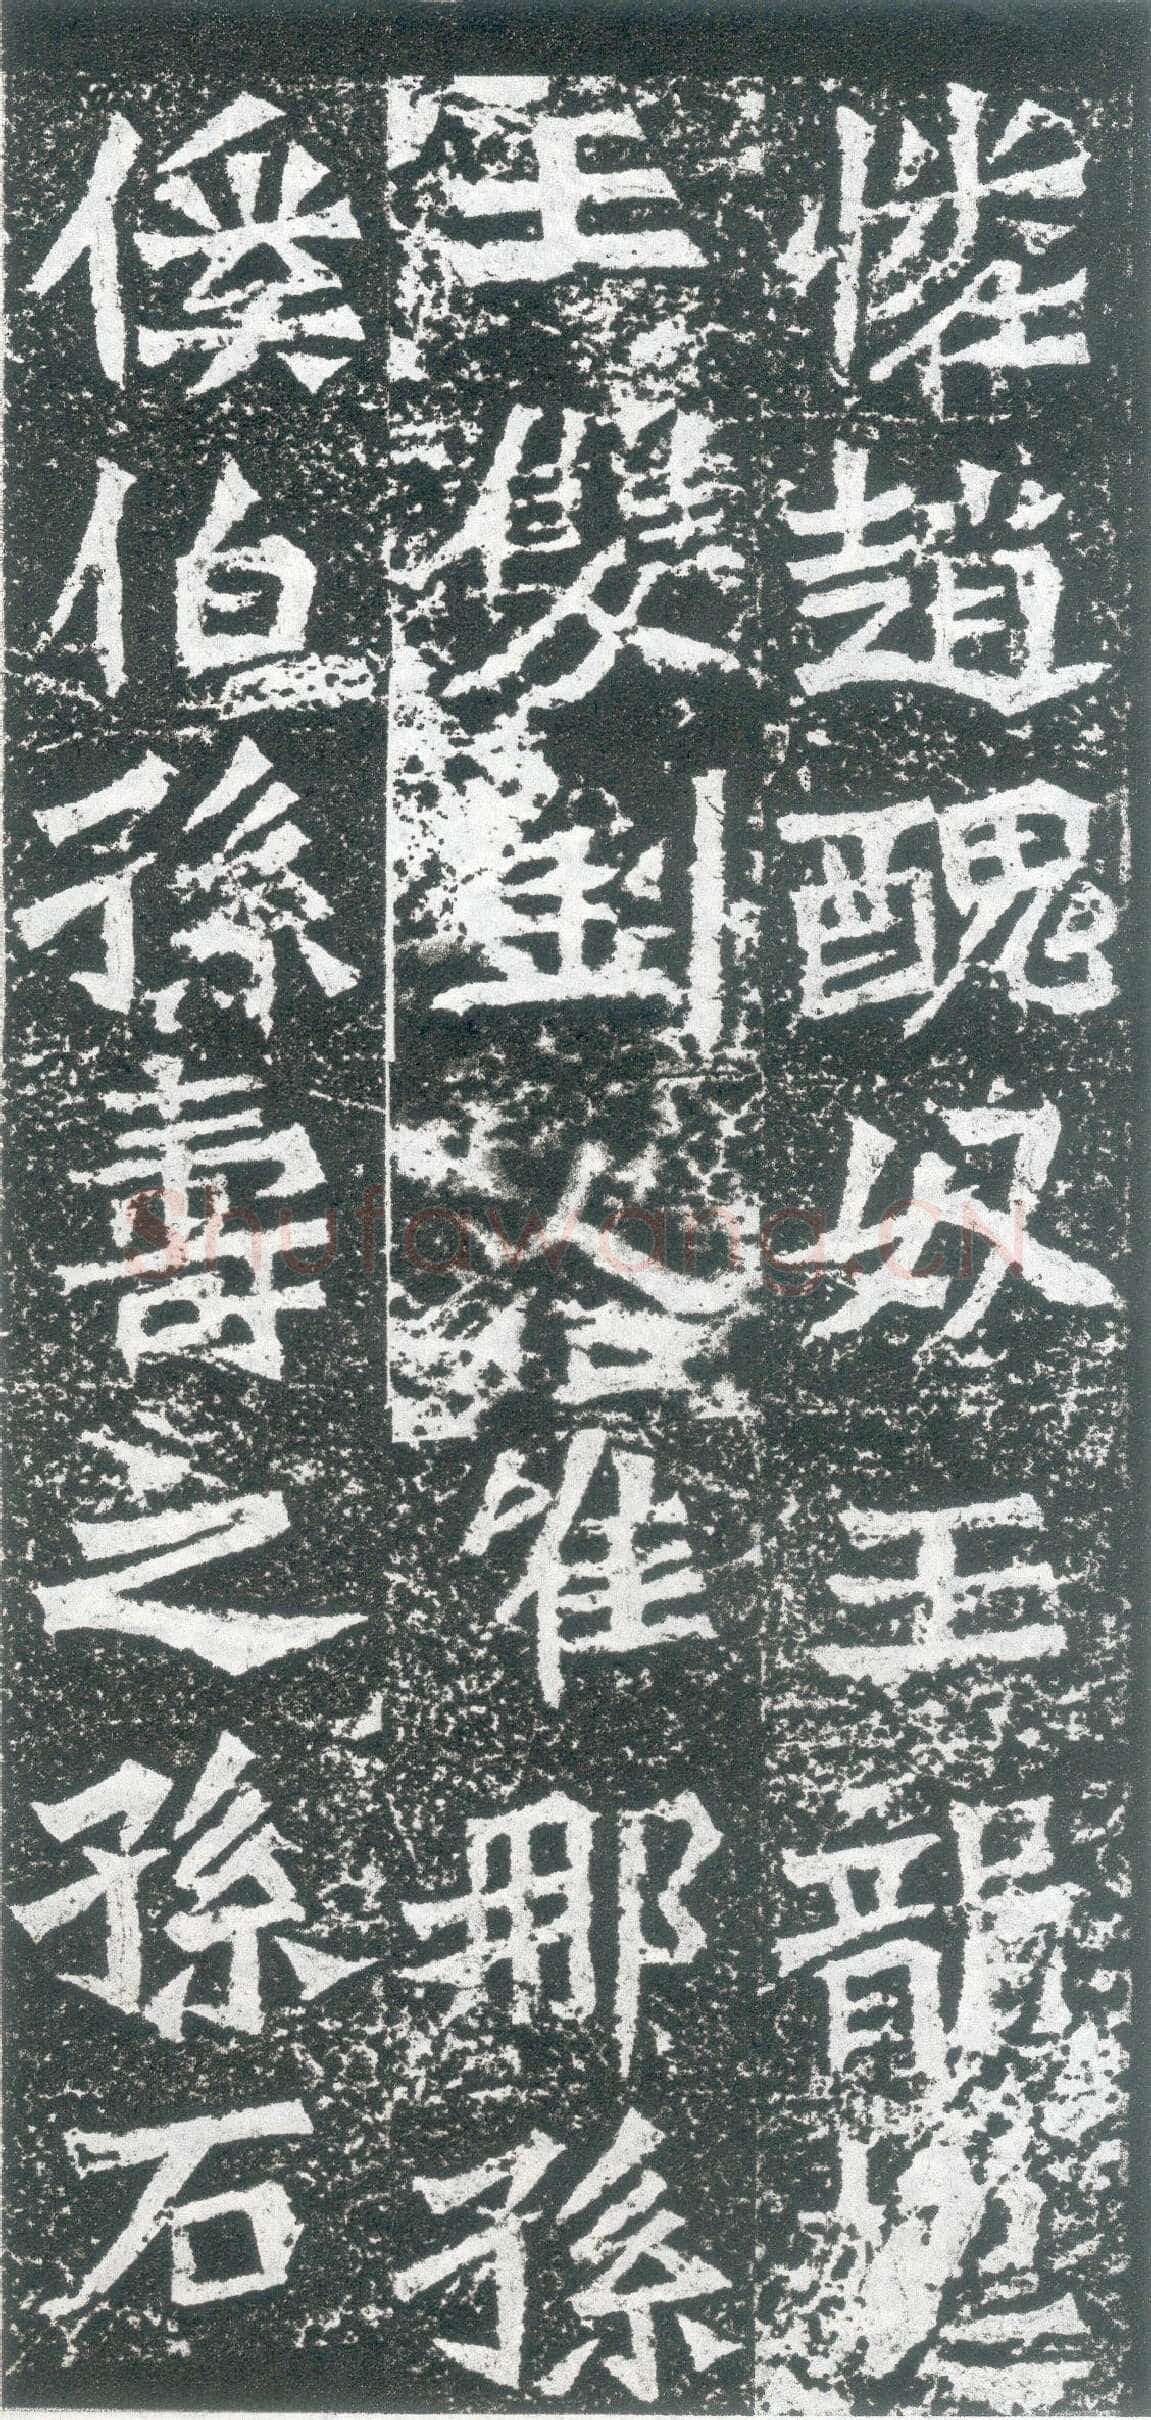 趙醜奴王龍
王雙劉唯那孫
傒伯孫壽之孫石
Shufawang.CN